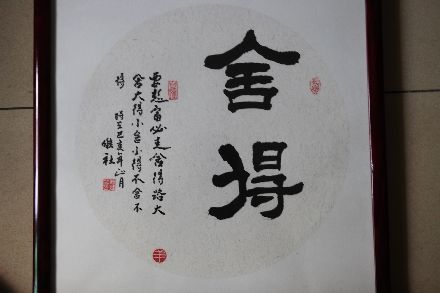 舍得
要想富必走舍得路大
舍大得小舍小得不舍不
得 時在己亥年正月
羊